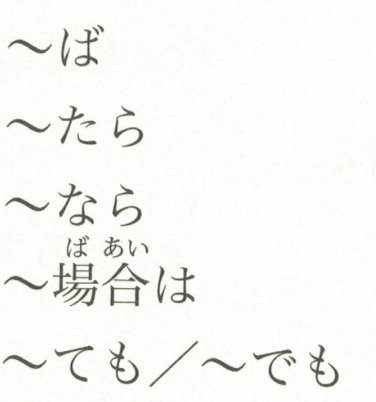 ～ば
～たら
～なら
ば あい
～場合は
～ても／～でも